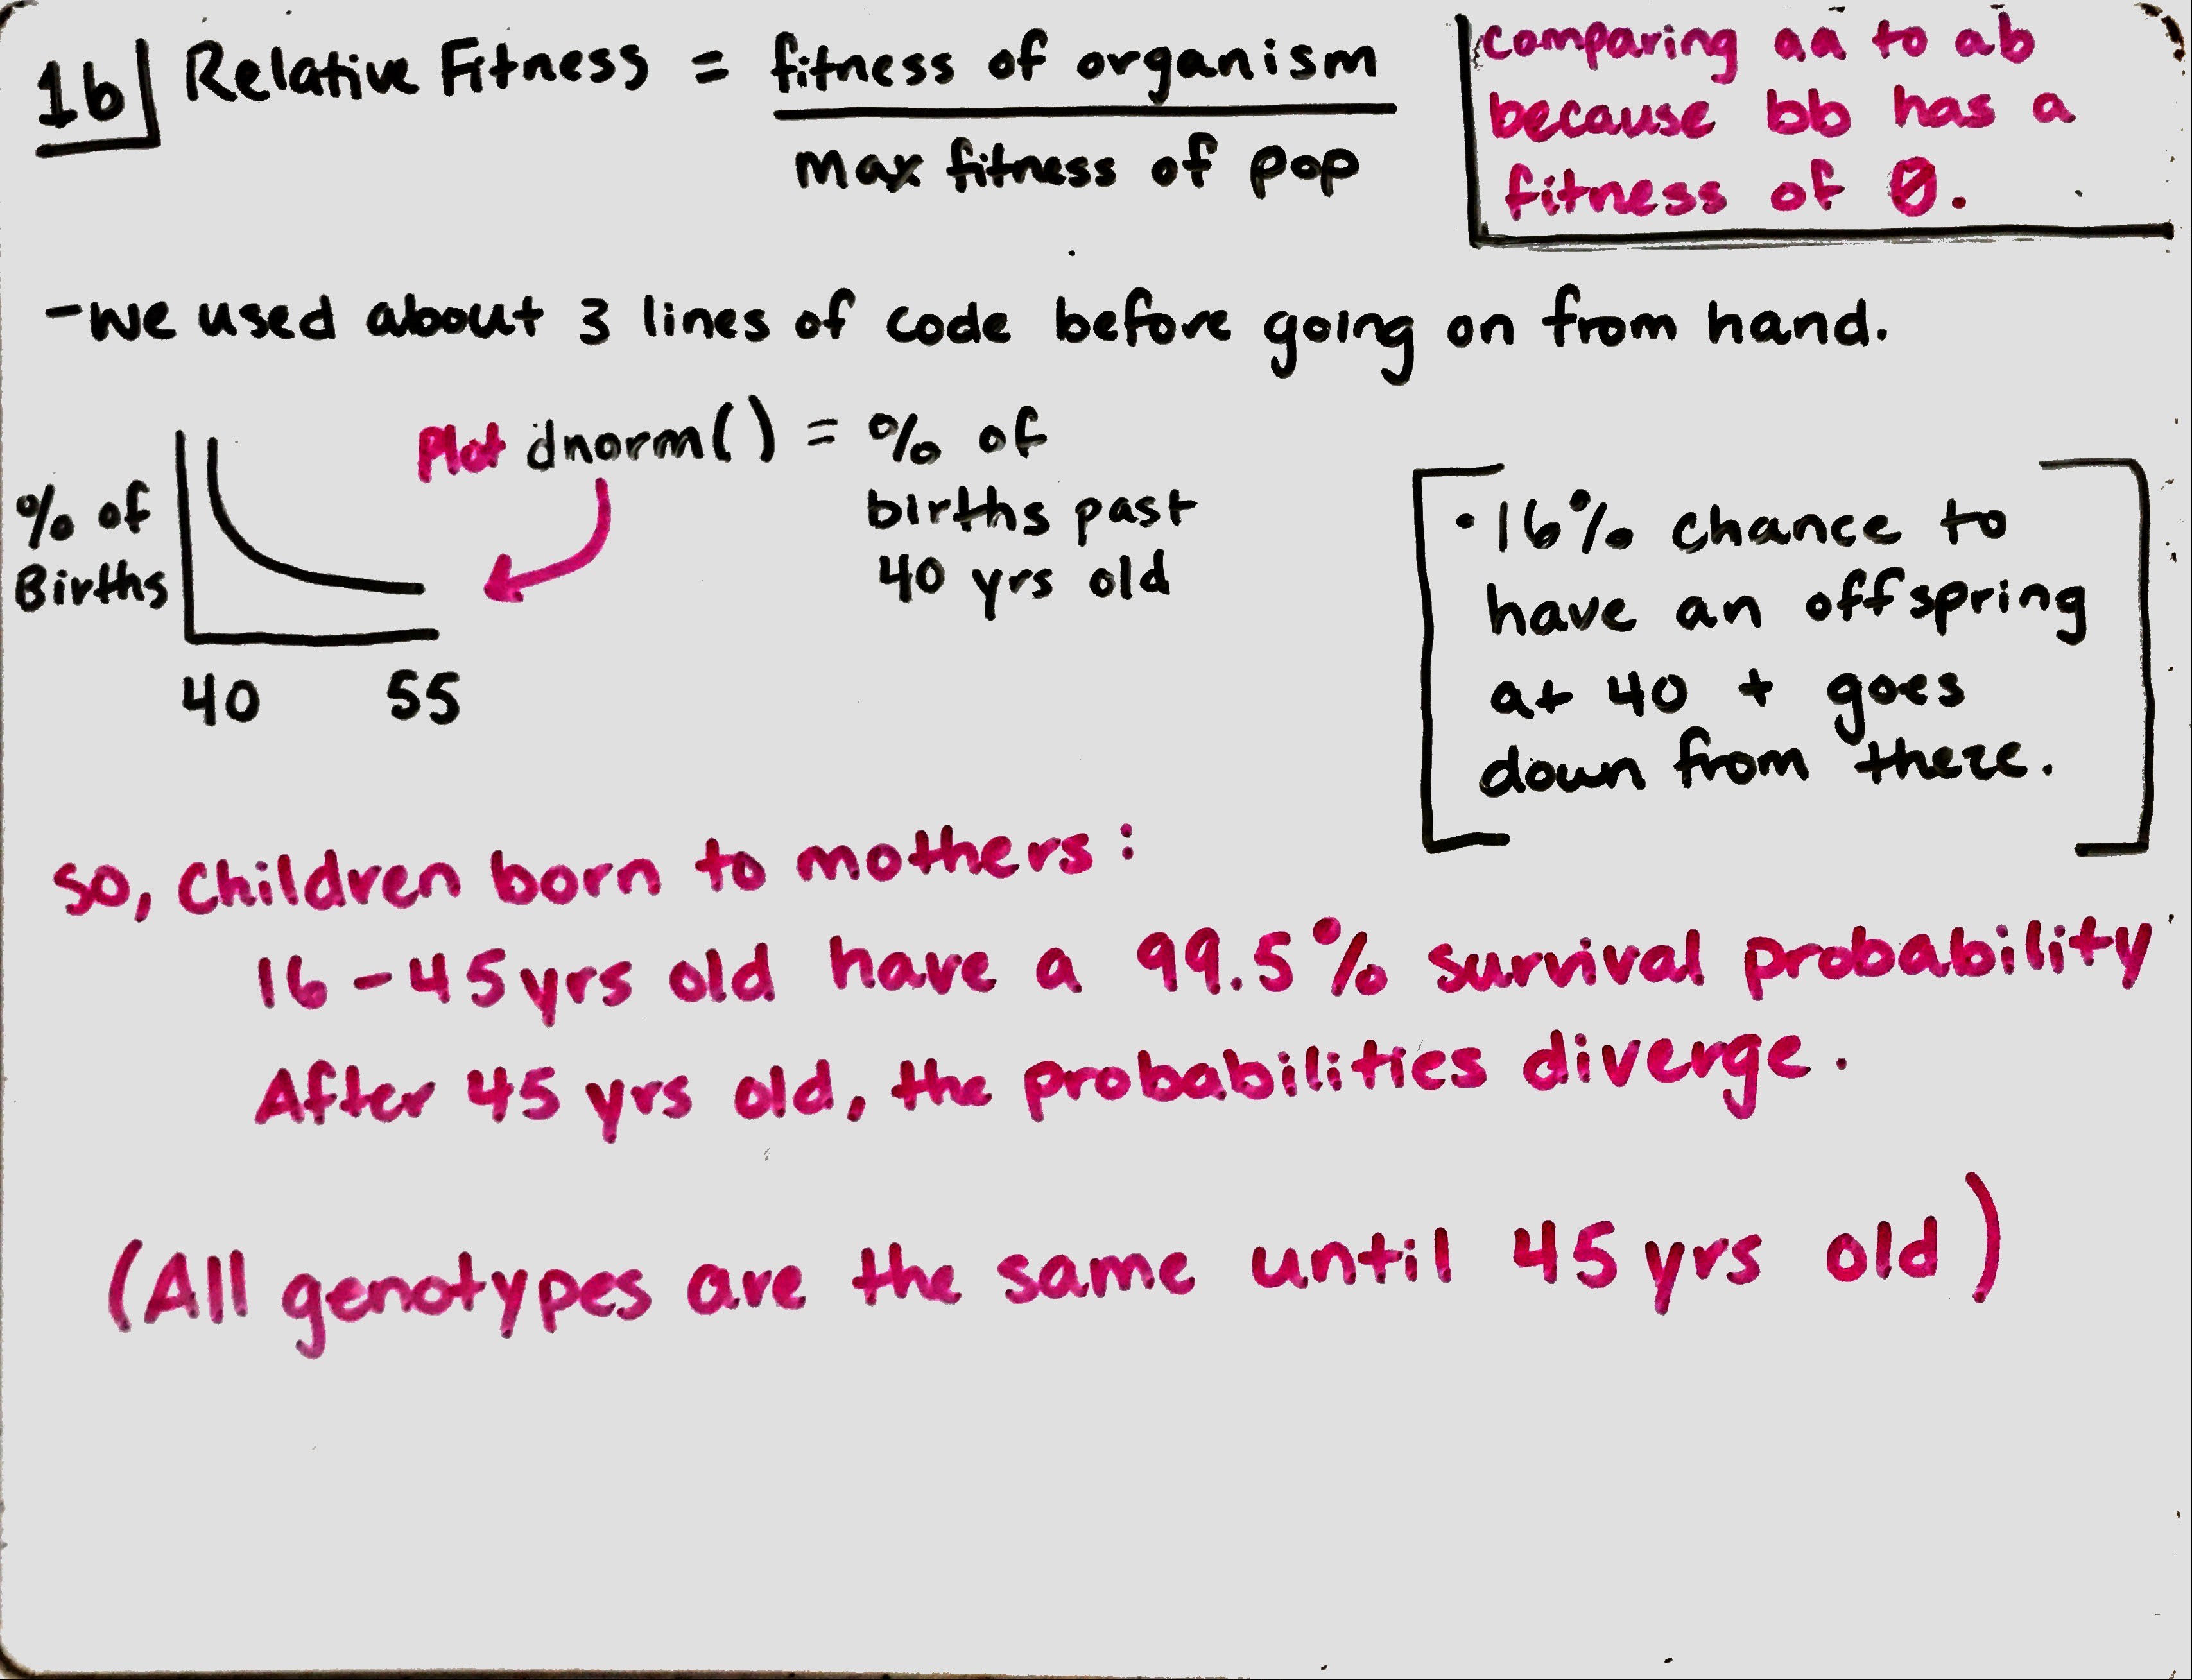 1b
Relative Fitness = fitness of organism
max fitness of pop
comparing aa to ab
because bb has a
fitness of 0.
- We used about 3 lines of code before going on from hand.
Plot dnorm() = % of
births past
40 yrs old
% of
Births
40 55
• 16% chance to
have an offspring
at 40 + goes
down from there.
so, children born to mothers:
16-45 yrs old have a 99.5% survival probability
After 45 yrs old, the probabilities diverge.
(All genotypes are the same until 45 yrs old)